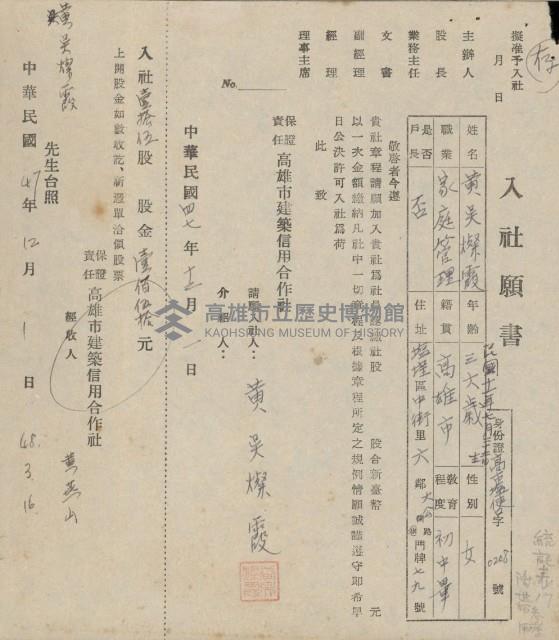 入社願書
存
擬准予入社
月 日
主辦人
股長
業務主任
文書
副經理
經理
理事主席
身份證高塩使字0208號
民國十一年七月三十一日生
姓名 黃吳燦霞 年齡 三六歲 性別 女
職業 家庭管理 籍貫 高雄市 教育程度 初中畢
是否戶長 否 住址 塩埕區中街里六鄰大公路門牌七九號
敬啓者今遵
貴社章程請願加入貴社爲社員 股合新臺幣 元
以一次金額繳納凡社中一切章程及根據章程所定之規例情願誠謹遵守即希早
日公決許可入社爲荷
此致
保證責任高雄市建築信用合作社
請願社人：黃吳燦霞
介紹人：
中華民國四七年十二月一日
No.
入社壹拾伍股 股金壹佰伍拾元
上開股金如數收訖、新憑單洽領股票
保證責任高雄市建築信用合作社
經收人
黃吳燦霞 先生台照
中華民國47年12月1日
48.3.16.
高雄市立歷史博物館
KAOHSIUNG MUSEUM OF HISTORY